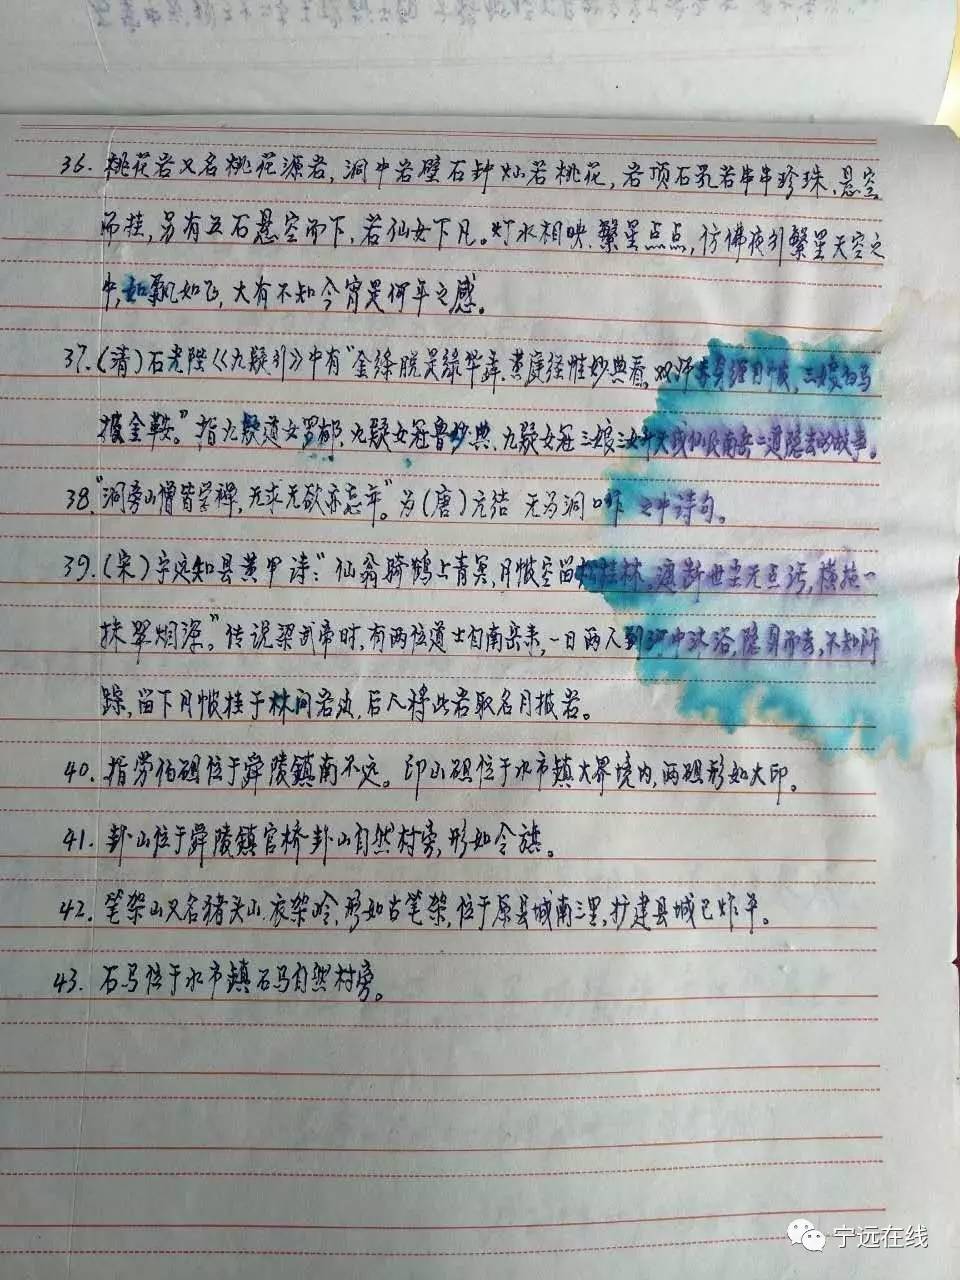 36. 桃花岩又名桃花源岩，洞中岩壁石钟灿若桃花，岩顶石乳若串串珍珠，悬空
而挂，另有五石悬空而下，若仙女下凡。灯水相映，繁星点点，仿佛夜行繁星天空之
中，如飘如飞，大有不知今宵是何年之感。
37.(清)石光陛《九疑行》中有"金条脱是绿华弄，黄庭经惟妙典看，双师 三娘白马
披金鞍。"指九疑道女罗郁、九疑女冠鲁妙典、九疑女冠三娘三女升天成仙及南岳二道隐去的故事。
38."洞旁山僧皆学禅，无求无欲亦忘年。"为(唐)元结 无为洞口作 之中诗句。
39.(宋)宁远知县黄甲诗："仙翁骑鹤上青冥，月帔空留 桂林。 断世尘无点污，横拖一
抹翠烟深。"传说梁武帝时，有两位道士自南岳来，一日两人到河中沐浴，隐身而去，不知所
踪，留下月帔挂于林间岩边，后人将此岩取名月披岩。
40. 指劳伯砠位于舜陵镇南不远。印山砠位于水市镇大界境内，两砠形如大印。
41. 卦山位于舜陵镇官桥卦山自然村旁，形如令旗。
42. 笔架山又名猪头山、衣架岭，形如古笔架，位于原县城南三里，扩建县城已炸平。
43. 石马位于水市镇石马自然村旁。
宁远在线